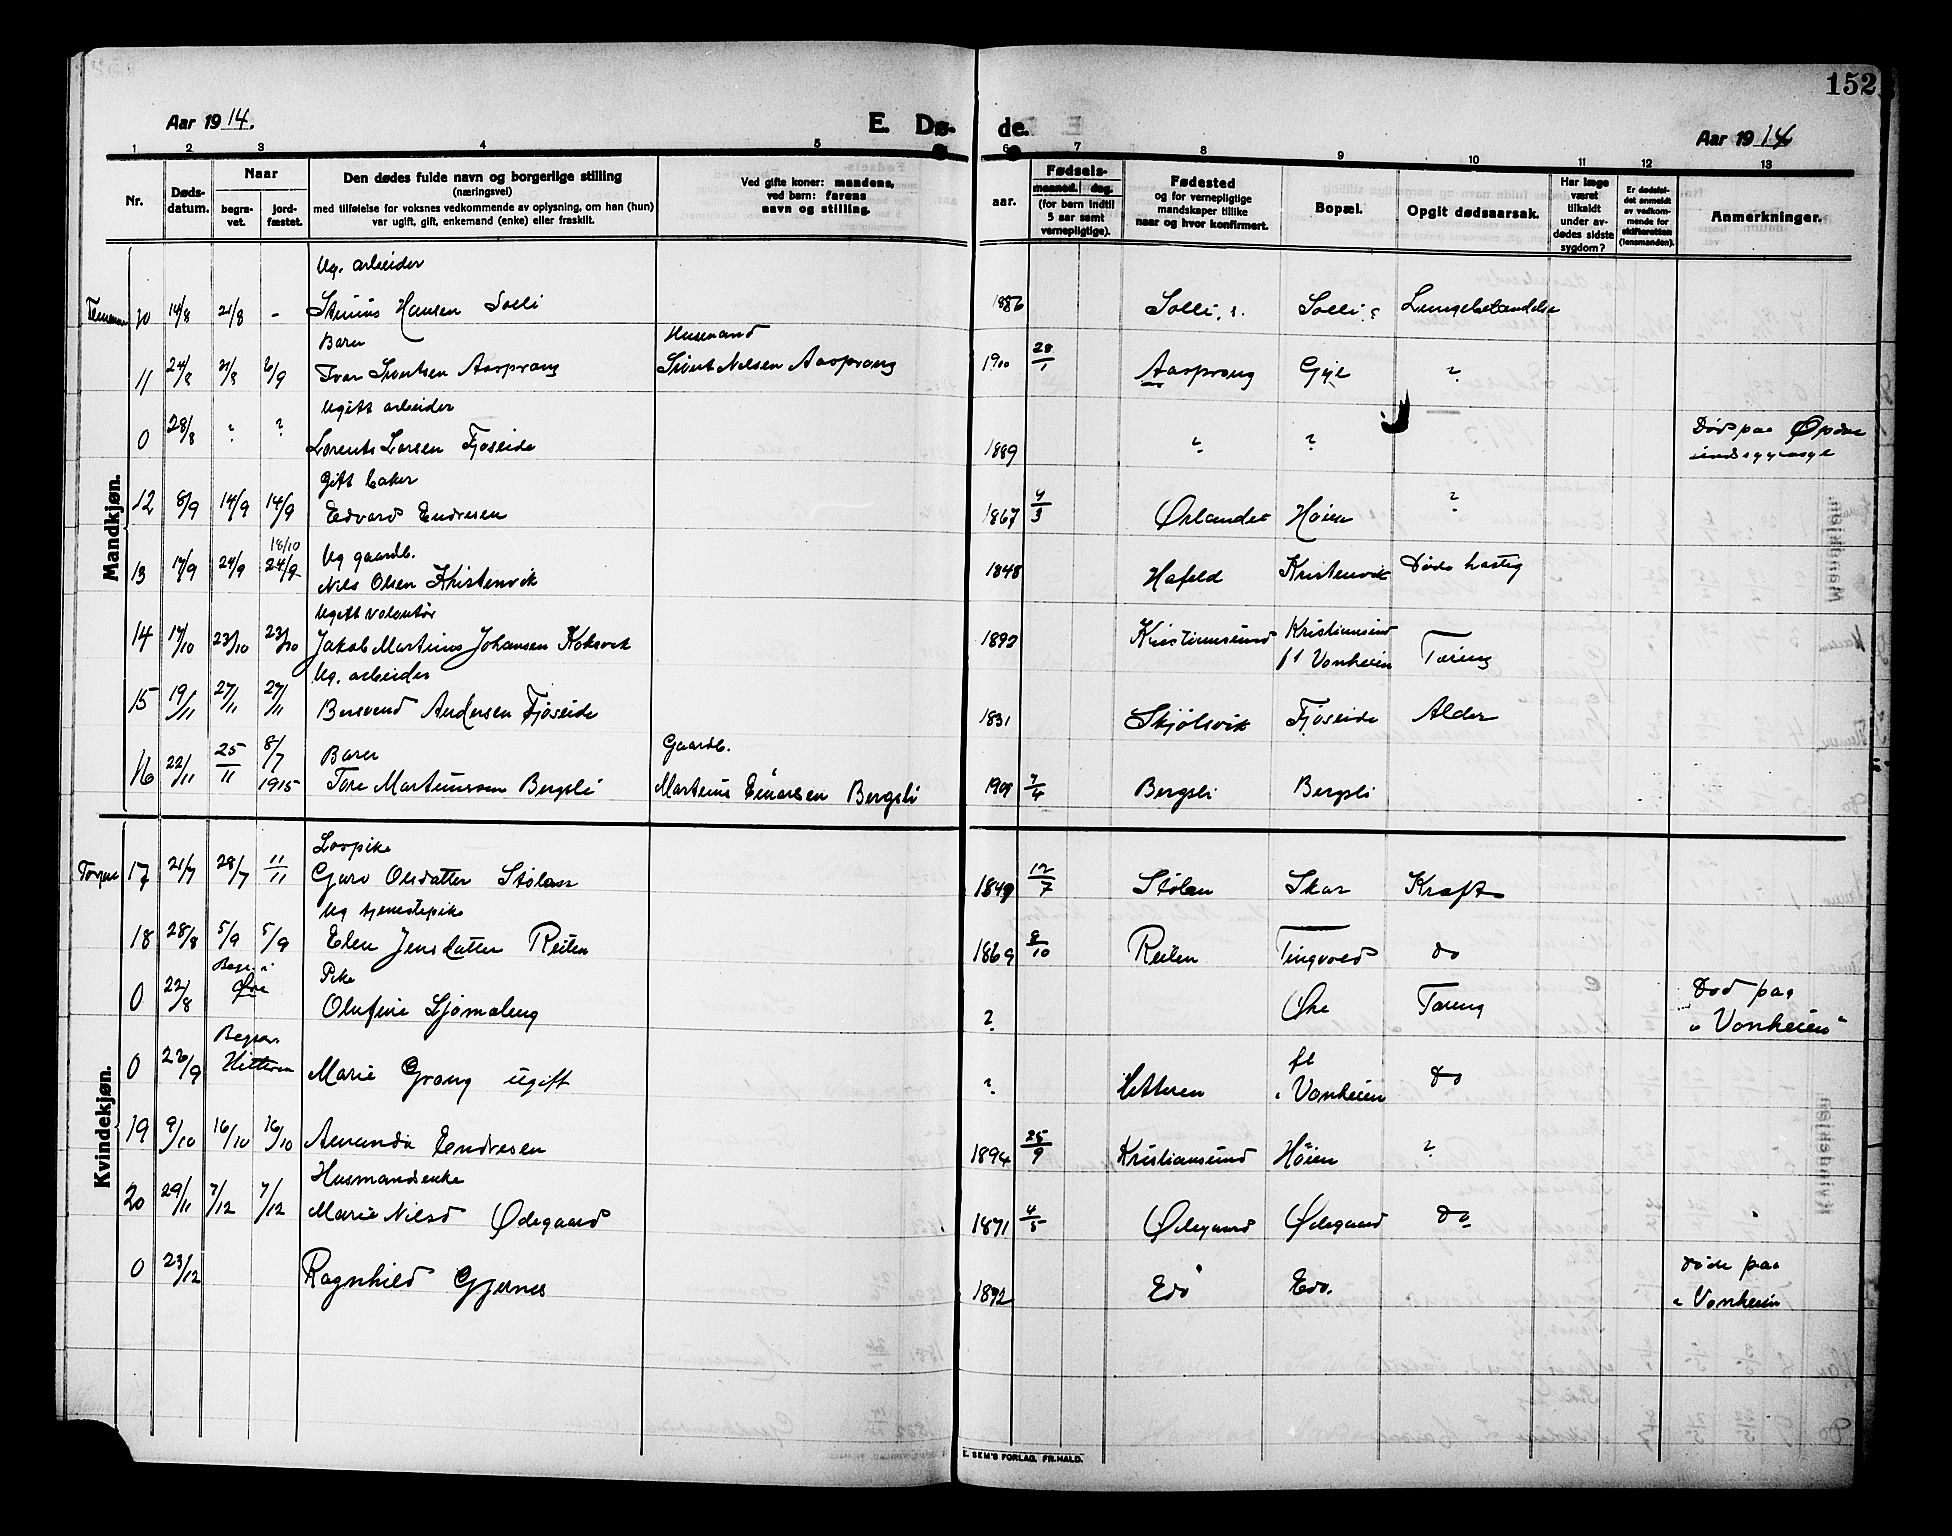 152
Aar 1914.
E. Dø- de.
Aar 1914
1 2 3 4 5 6 7 8 9 10 11 12 13
Nr.
Døds-
datum.
Naar
begra-
vet.
jord-
fæstet.
Den dødes fulde navn og borgerlige stilling
(næringsvei)
med tilføielse for voksnes vedkommende av oplysning, om han (hun)
var ugift, gift, enkemand (enke) eller fraskilt.
Ved gifte koner: mandens,
ved børn: farens
navn og stilling.
aar.
Fødsels-
maaned. dag.
(for børn indtil
5 aar samt
vernepligtige).
Fødested
og for vernepligtige
mandskaper tillike
naar og hvor konfirmert.
Bopæl.
Opgit dødsaarsak.
Har læge
været
tilkaldt
under av-
dødes sidste
sygdom?
Er dødsfal-
det anmeldt
av vedkom-
mende for
skifteretten
(lensmanden).
Anmerkninger.
Mandkjøn.
Ug. arbeider
10 14/8 21/8 - Hansen Solli 1886 Solli, Solli, Lungebetændelse
Barn Husmand
11 24/8 31/8 6/9 Ivar Sivertsen Aasprang Sivert Nilsen Aasprang 1900 28/1 Aasprang Gyl ?
Ugift arbeider
0 28/8 ? ? Lorents Larsen Fjøseide 1889 ? ? Død paa Opdøl
sindssygeasyl
Gift baker
12 8/9 14/9 14/9 Edvard Endresen 1867 4/3 Ørlandet Høien ?
18/10
Ug gaardb.
13 17/9 24/9 24/9 Nils Olsen Kristenvik 1848 Hafeld Kristenvik Døde hastig
Ugift volontør
14 17/10 23/10 23/10 Jakob Martinus Johansen Koksvik 1892 Kristiansund Kristiansund
ft Vonheim Tæring
Ug. arbeider
15 19/11 27/11 27/11 Bersvend Andersen Fjøseide 1831 Skjølsvik Fjøseide Alder
Barn Gaardb.
16 22/11 25/11 8/7 1915 Tore Martinussen Bergsli Martinus Einarsen Bergsli 1909 7/4 Bergsli Bergsli
Kvindekjøn.
Lovpike
17 21/7 28/7 11/11 Guro Olsdatter Stølan 1849 12/7 Stølan Skar Kræft
Ug tjenestepike
18 28/8 5/9 5/9 Elen Jensdatter Reiten 1869 8/10 Reiten Tingvold do
Pike
0 22/8 Begr. i Øre Olufine Sjømaling ? Øre Tæring Død paa
"Vonheim"
0 26/9 Begrav. Hitteren Marie Grang ugift ? Hitteren ft
"Vonheim do
19 9/10 16/10 16/10 Amanda Endresen 1894 25/9 Kristiansund Høien ?
Husmandsenke
20 29/11 7/12 7/12 Marie Nilsd Ødegaard 1871 4/5 Ødegaard Ødegaard do
0 23/12 Ragnhild Gjernes 1892 Edø Edø. Døde paa
"Vonheim
E. SEM'S FORLAG, FR.HALD.